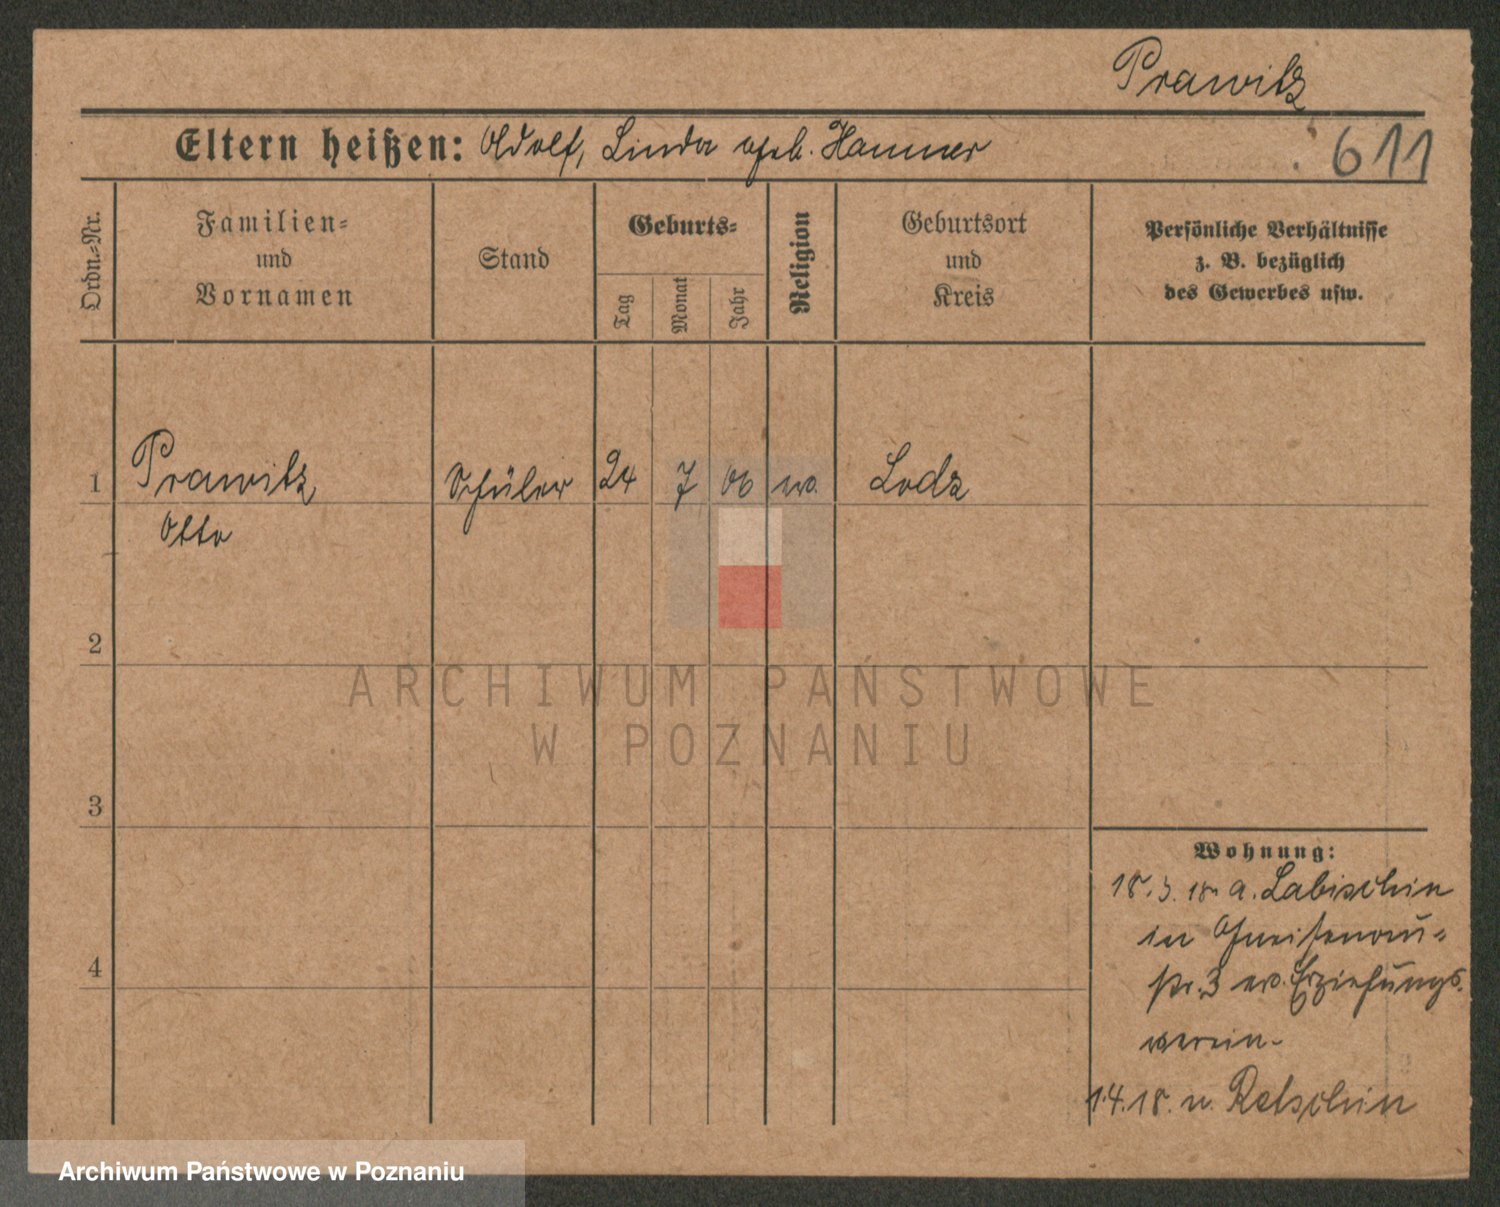 Prawitz
Eltern heißen: Adolf, Linda geb. Hammer
611
Ordn.-Nr.
Familien-
und
Vornamen
Stand
Geburts-
Tag
Monat
Jahr
Religion
Geburtsort
und
Kreis
Persönliche Verhältnisse
z. B. bezüglich
des Gewerbes usw.
1 Prawitz, Schüler 24 7 06 ev. Lodz
Otto
2
3
4
Wohnung:
18.3.18. a. Labischin
in Gneisenau-
str. 3 ev. Erziehungs-
verein.
1.4.18. n. Retschin
ARCHIWUM PAŃSTWOWE
W POZNANIU
Archiwum Państwowe w Poznaniu